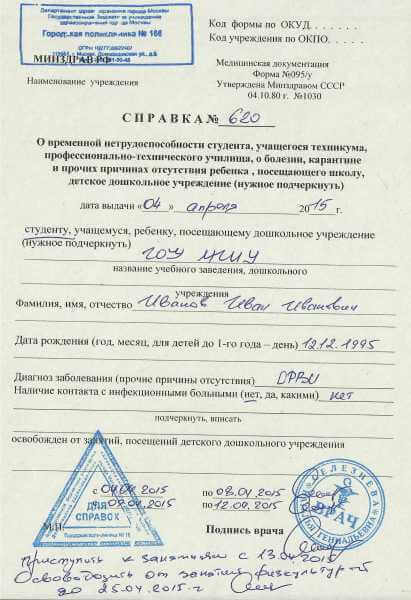 Департамент здравоохранения города Москвы
Государственное бюджетное учреждение
здравоохранения города Москвы
Городская поликлиника № 166
Код формы по ОКУД. . . . . . .
Код учреждения по ОКПО. . . . .
МИНЗДРАВ РФ
Наименование учреждения
Медицинская документация
Форма №095/у
Утверждена Минздравом СССР
04.10.80 г. №1030
СПРАВКА № 620
О временной нетрудоспособности студента, учащегося техникума,
профессионально-технического училища, о болезни, карантине
и прочих причинах отсутствия ребенка , посещающего школу,
детское дошкольное учреждение (нужное подчеркнуть)
дата выдачи «04» апреля 2015 г.
студенту, учащемуся, ребенку, посещающему дошкольное учреждение
(нужное подчеркнуть)
ГОУ
название учебного заведения, дошкольного
учреждения
Фамилия, имя, отчество Иванов Иван Иванович
Дата рождения (год, месяц, для детей до 1-го года – день) 12.12.1995
Диагноз заболевания (прочие причины отсутствия) ОРВИ
Наличие контакта с инфекционными больными (нет, да, какими) нет
подчеркнуть, вписать
освобожден от занятий, посещений детского дошкольного учреждения
с 04.04.2015 по 08.04.2015
с 09.04.2015 по 12.04.2015
ДЛЯ
СПРАВОК
М.П.
Подпись врача
ВРАЧ
ГЕННАДЬЕВНА
Приступить к занятиям с 13.04.2015
Освободить от занятий физкультурой
до 25.04.2015 г